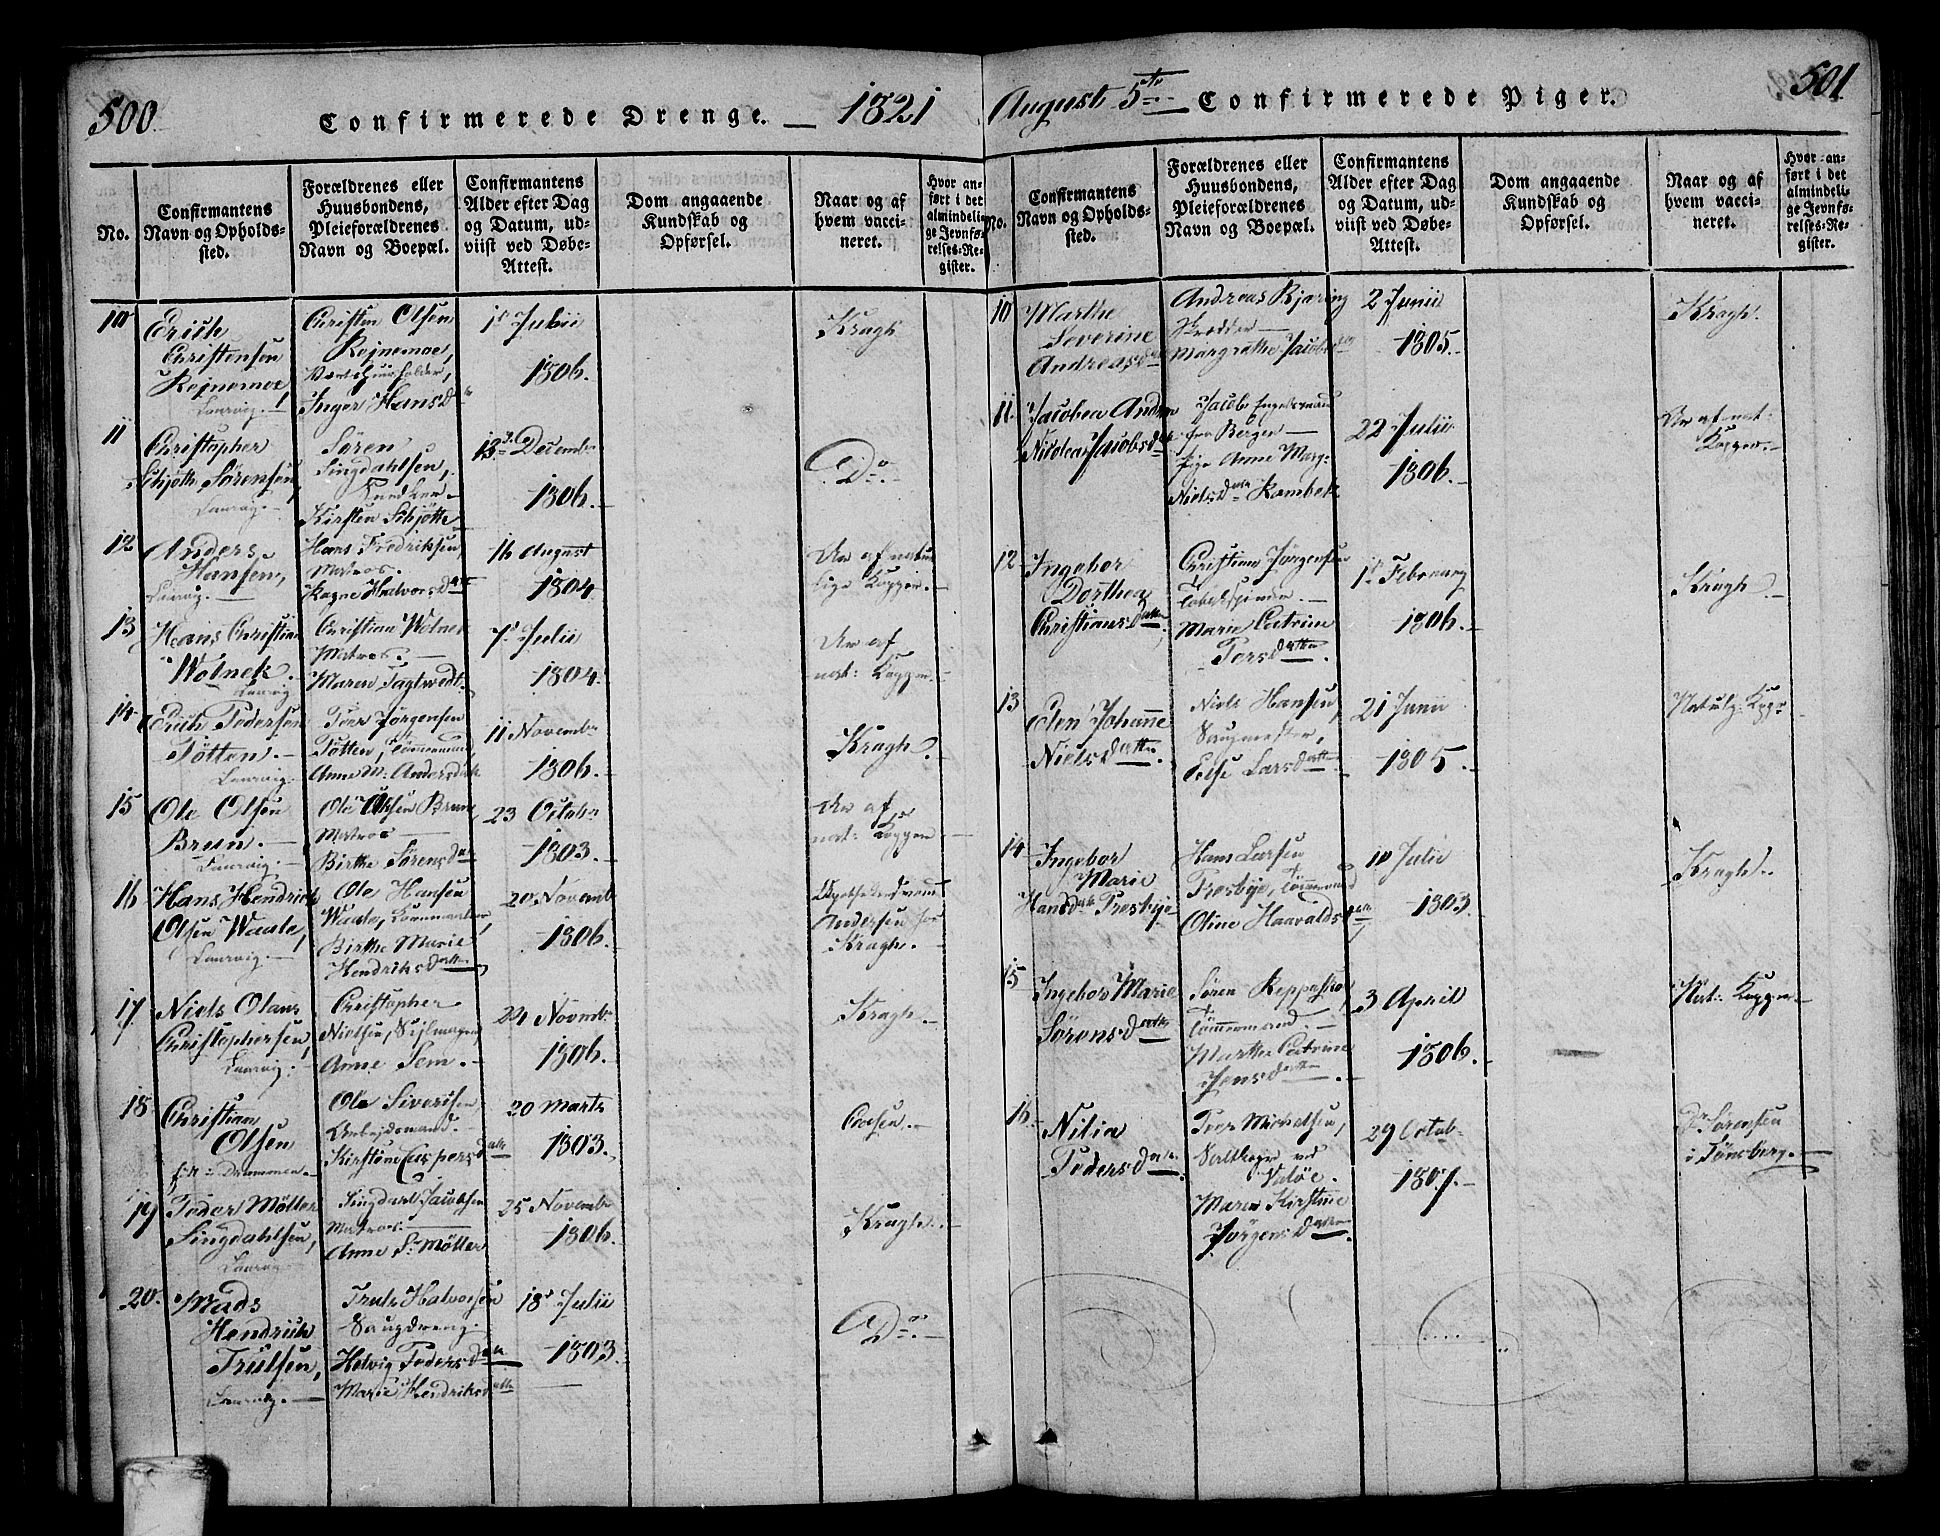 500
Confirmerede Drenge. — 1821
No.
Confirmantens
Navn og Opholds-
sted.
Forældrenes eller
Huusbondens,
Pleieforældrenes
Navn og Boepæl.
Confirmantens
Alder efter Dag
og Datum, ud-
viist ved Døbe-
Attest.
Dom angaaende
Kundskab og
Opførsel.
Naar og af
hvem vacci-
neret.
Hvor an-
ført i det
almindeli-
ge Jevnfø-
relses-Re-
gister.
10
Erich
Christensen
Laurvig.
Christen Olsen
Inger Hansd
1 Julii
1806.
Kragh
11
Christopher
Schjøth Sørensen,
Laurvig.
Søren
Singdahlsen,
Kirsten Schjøtte
13 Decembr
1806.
Do.
12
Anders
Hansen,
Laurvig.
Hans Fredriksen,
Matros.
Halvorsdatt
16 August
1804
Ar af natur
lige Kopper.
13
Hans Christian
Wolnek.
Laurvig
Christian Wolner
Matros.
Maren
7 Julii
1804.
Ar af
nat: Kopper.
14
Erich Pedersen
Totten.
Laurvig.
Peer Jørgensen
Totten, Tømmermand,
Anne M: Andersdatt
11 Novembr
1806.
Kragh.
15
Ole Olsen
Bruun.
Laurvig.
Ole Olsen Bruun,
Matros
Birthe Sørensdat
23 Octobr
1803.
Ar af
nat: Kopper
16
Hans Hendrich
Olsen Waale,
Laurvig.
Ole Hansen
Waale,
Birthe Marie
Hendriksdatter,
20 Novemb
1806.
Andersen hos
Kragh.
17
Niels Olaus
Christophersen,
Laurvig.
Christopher
Nielsen, Sejlmager,
Anne Sem.
24 Novmbr
1806.
Kragh.
18
Christian
Olsen
Drammen.
Ole Siversen
Arbejdsmand.
Kirstine Caspersdatt
20 Marts
1803.
19
Peder Møller
Singdahlsen,
Laurvig
Singdahl Jacobsen
Matros.
Anne S. Møller
25 Novembr
1806.
Kragh.
20.
Mads
Hendrich
Trulsen,
Laurvig.
Truls Halvorsen
Saugdreng.
Helvig Pedersdatt
Marie Hendriksdatt
18 Julii
1803.
Do.
501
August 5te Confirmerede Piger.
No.
Confirmantens
Navn og Opholds-
sted.
Forældrenes eller
Huusbondens,
Pleieforældrenes
Navn og Boepæl.
Confirmantens
Alder efter Dag
og Datum, ud-
viist ved Døbe-
Attest.
Dom angaaende
Kundskab og
Opførsel.
Naar og af
hvem vacci-
neret.
Hvor an-
ført i det
almindeli-
ge Jevnfø-
relses-Re-
gister.
10
Marthe
Severine
Andreasd
Andreas Bjering
Skredder
Margrethe Jacobs
2 Junii
1805.
Kragh.
11.
Jacobea
Nicolea Jacobsdatt
Jacob
fra Bergen
Pige Anne Marg:
Nielsdatt
22 Julii
1806.
Ar af nat:
Kopper.
12
Ingebor
Dorthea
Christiansdatter
Christian Jørgensen
Marie Catrine
Persdatter.
1 February
1806.
Kragh.
13
Elen Johanne
Nielsdatter
Niels Hansen,
Saugmester,
Else Larsdatter
21 Junii
1805.
14
Ingebor
Marie
Hansdatt Frosbye
Hans Larsen
Frosbye, Tømmermand
Oline Haavaldsdatt
10 Julii
1803.
Kragh.
15
Ingebor Marie
Sørensdatt
Søren
Tømmermand.
Marthe Catrine
Jensdatter.
3 April
1806.
Nat: Kopper.
16
Nilia
Pedersdatt.
Peer
ved
Valøe.
Maren Kirstine
Jørgensdatter.
29 Octob.
Dr Sørensen
i Tønsberg.